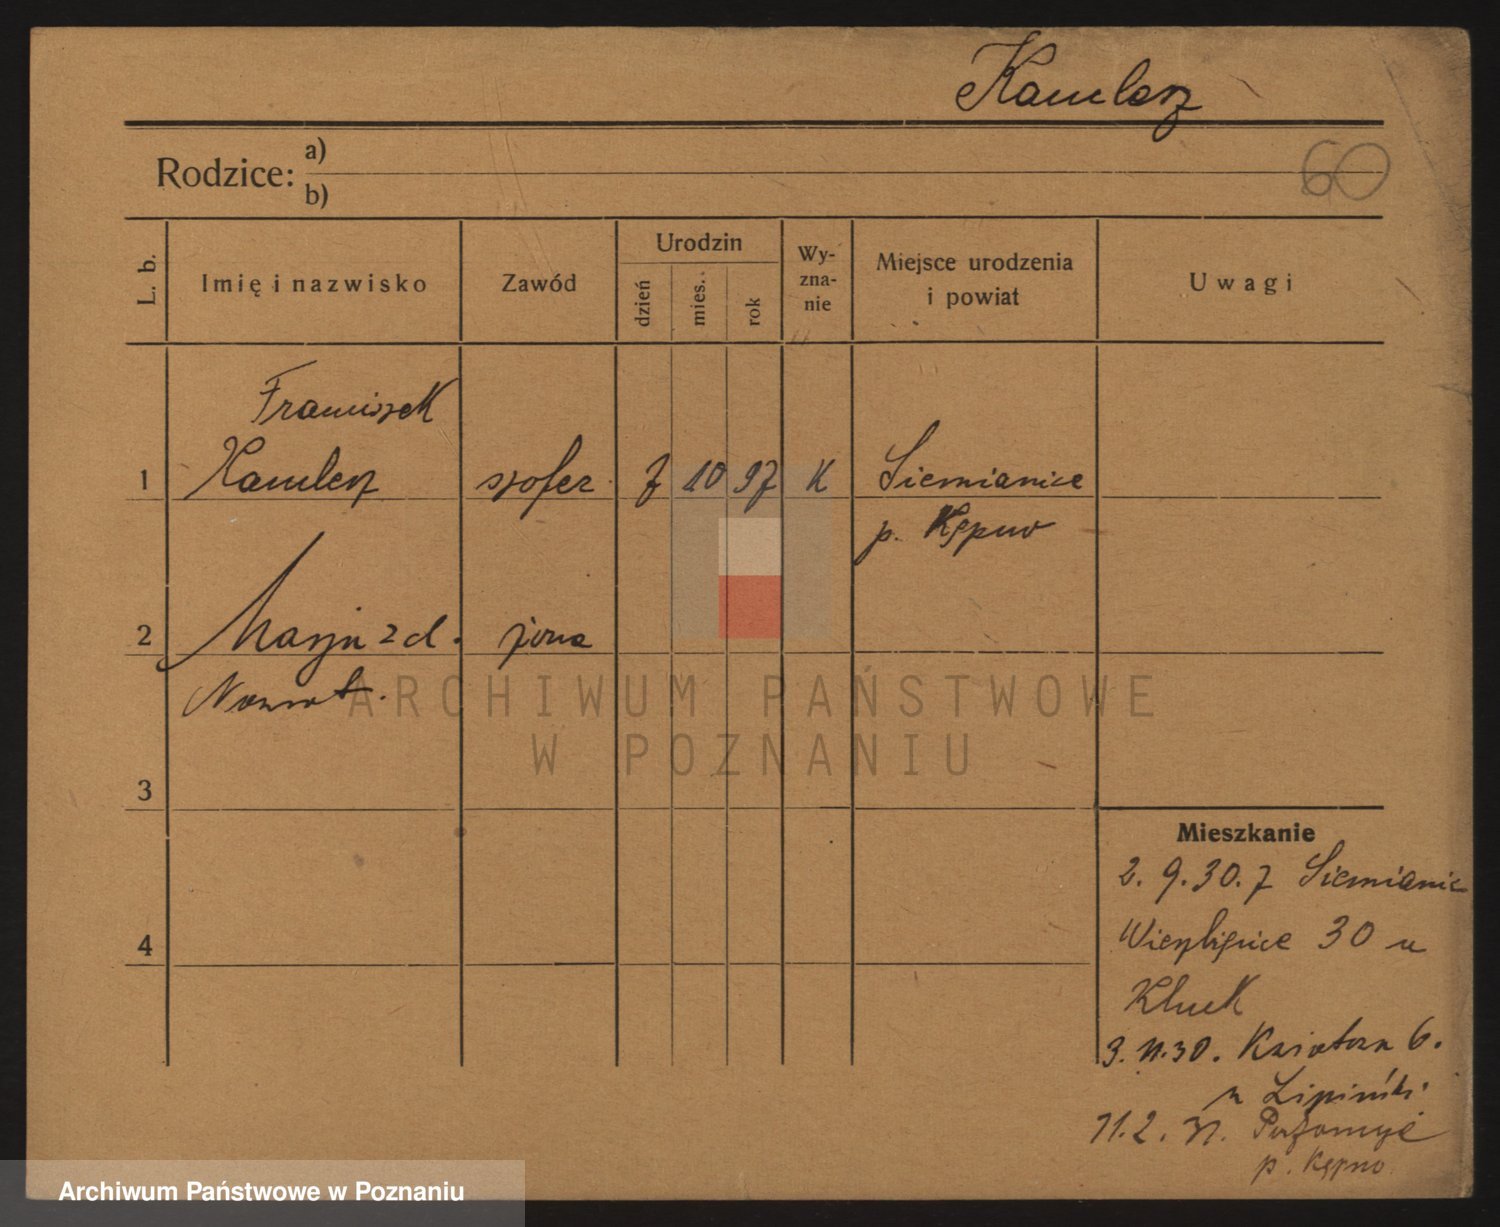 Kamlesz
60
Rodzice: a)
b)
L. b.
Imię i nazwisko
Zawód
Urodzin
dzień
mies.
rok
Wy-
zna-
nie
Miejsce urodzenia
i powiat
Uwagi
Franciszek
1 Kamlesz szofer 7 10 97 K Siemianice
p. Kępno
2 Marja z d. żona
3
4
ARCHIWUM PAŃSTWOWE
W POZNANIU
Mieszkanie
2. 9. 30. z Siemianic
Wierzbięcice 30 u
Kluck
3. 11. 30. 6.
u Lipiński
11. 2. 31.
p. Kępno
Archiwum Państwowe w Poznaniu